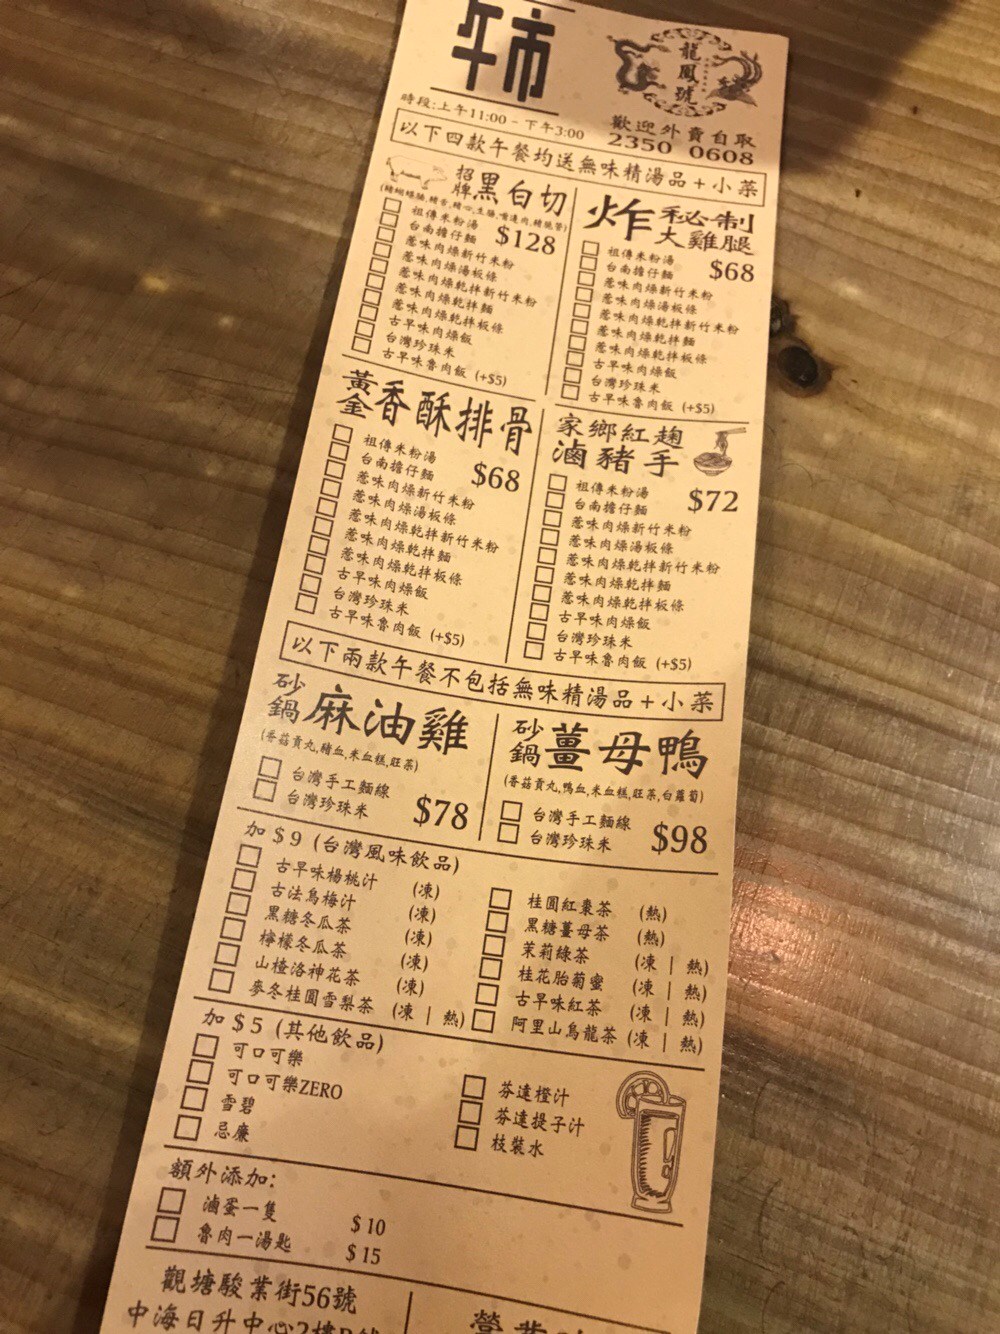 午市
龍鳳號
時段:上午11:00 - 下午3:00
歡迎外賣自取
2350 0608
以下四款午餐均送無味精湯品+小菜
招牌黑白切
$128
祖傳米粉湯
台南擔仔麵
惹味肉燥新竹米粉
惹味肉燥湯板條
惹味肉燥乾拌新竹米粉
惹味肉燥乾拌麵
惹味肉燥乾拌板條
古早味肉燥飯
台灣珍珠米
古早味魯肉飯 (+$5)
炸秘制大雞腿
$68
祖傳米粉湯
台南擔仔麵
惹味肉燥新竹米粉
惹味肉燥湯板條
惹味肉燥乾拌新竹米粉
惹味肉燥乾拌麵
惹味肉燥乾拌板條
古早味肉燥飯
台灣珍珠米
古早味魯肉飯 (+$5)
黃金香酥排骨
$68
祖傳米粉湯
台南擔仔麵
惹味肉燥新竹米粉
惹味肉燥湯板條
惹味肉燥乾拌新竹米粉
惹味肉燥乾拌麵
惹味肉燥乾拌板條
古早味肉燥飯
台灣珍珠米
古早味魯肉飯 (+$5)
家鄉紅麴
滷豬手
$72
祖傳米粉湯
台南擔仔麵
惹味肉燥新竹米粉
惹味肉燥湯板條
惹味肉燥乾拌新竹米粉
惹味肉燥乾拌麵
惹味肉燥乾拌板條
古早味肉燥飯
台灣珍珠米
古早味魯肉飯 (+$5)
以下兩款午餐不包括無味精湯品+小菜
砂鍋麻油雞
(香菇貢丸,豬血,米血糕,旺菜)
台灣手工麵線
台灣珍珠米
$78
砂鍋薑母鴨
(香菇貢丸,鴨血,米血糕,旺菜,白蘿蔔)
台灣手工麵線
台灣珍珠米
$98
加$9 (台灣風味飲品)
古早味楊桃汁 (凍)
古法烏梅汁 (凍)
黑糖冬瓜茶 (凍)
檸檬冬瓜茶 (凍)
山楂洛神花茶 (凍)
麥冬桂圓雪梨茶 (凍 | 熱)
桂圓紅棗茶 (熱)
黑糖薑母茶 (熱)
茉莉綠茶 (凍 | 熱)
桂花胎菊蜜 (凍 | 熱)
古早味紅茶 (凍 | 熱)
阿里山烏龍茶 (凍 | 熱)
加$5 (其他飲品)
可口可樂
可口可樂ZERO
雪碧
忌廉
芬達橙汁
芬達提子汁
枝裝水
額外添加:
滷蛋一隻 $10
魯肉一湯匙 $15
觀塘駿業街56號
中海日升中心2樓
營業